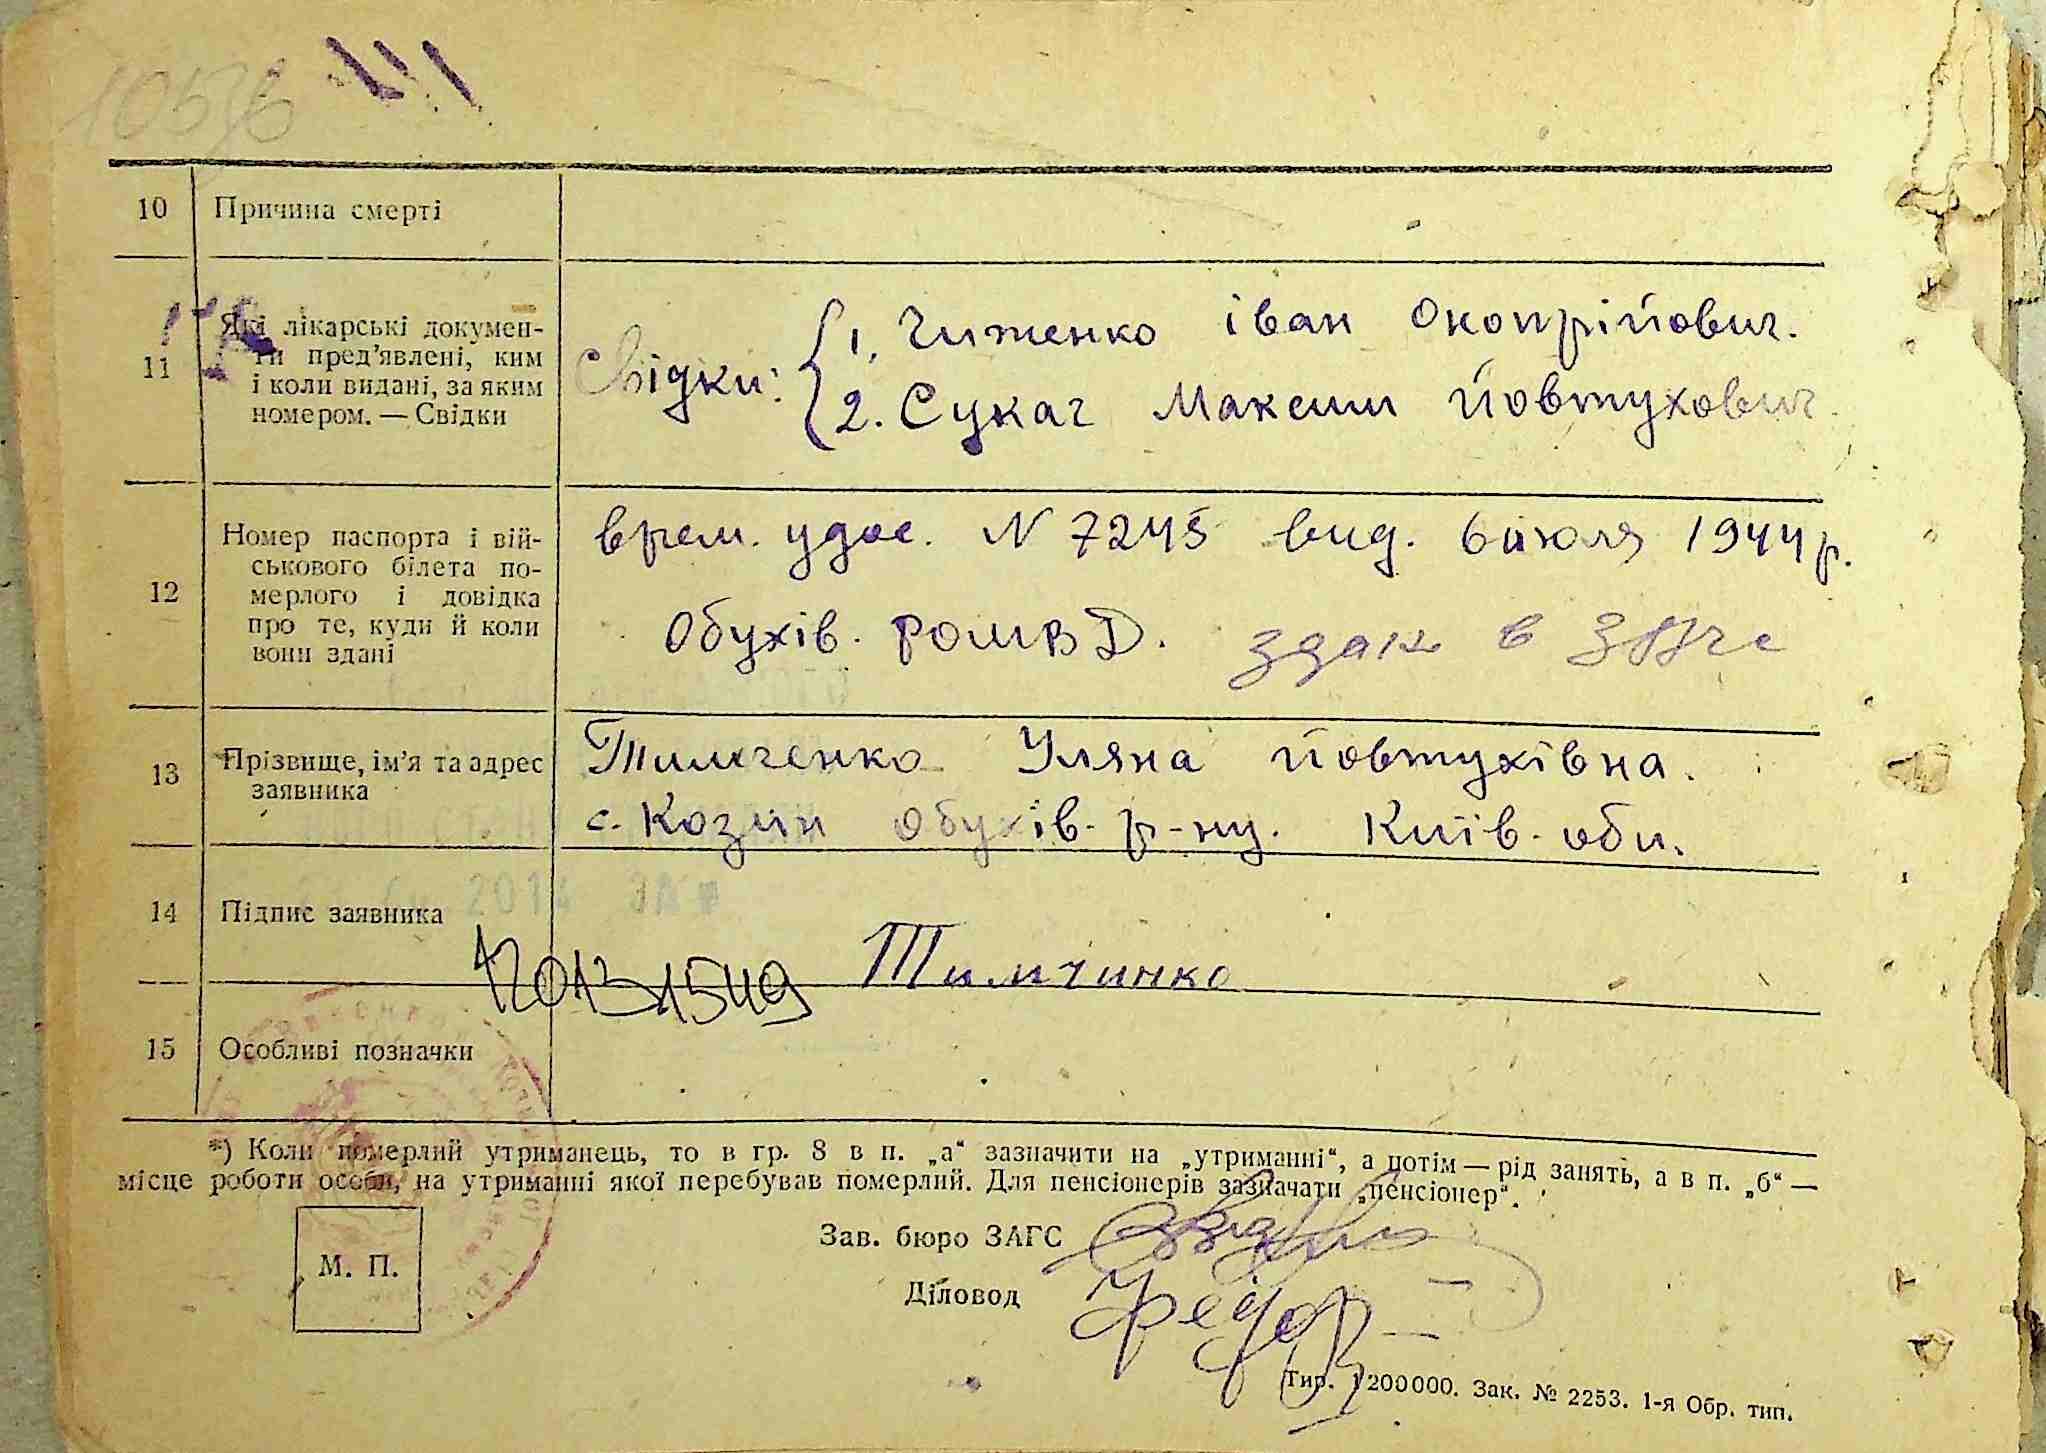 10536
10 Причина смерті
11 Які лікарські докумен-
ти пред’явлені, ким
і коли видані, за яким
номером. — Свідки
Свідки: 1. Чиженко Іван Окопрійович.
2. Сукач Максим Йовтухович
12 Номер паспорта і вій-
ськового білета по-
мерлого і довідка
про те, куди й коли
вони здані
врем. удос. N 7245 вид. 6 июля 1944 р.
Обухів. РОМВД. здан в ЗАГС
13 Прізвище, ім’я та адрес
заявника
Тимченко Уляна Йовтухівна.
с. Козин Обухів. р-ну. Київ. обл.
14 Підпис заявника
Тимчинко
15 Особливі позначки
*) Коли померлий утриманець, то в гр. 8 в п. „а“ зазначити на „утриманні“, а потім — рід занять, а в п. „б“ —
місце роботи особи, на утриманні якої перебував померлий. Для пенсіонерів зазначати „пенсіонер“.
М. П.
Зав. бюро ЗАГС
Діловод
Тир. 1200000. Зак. № 2253. 1-я Обр. тип.